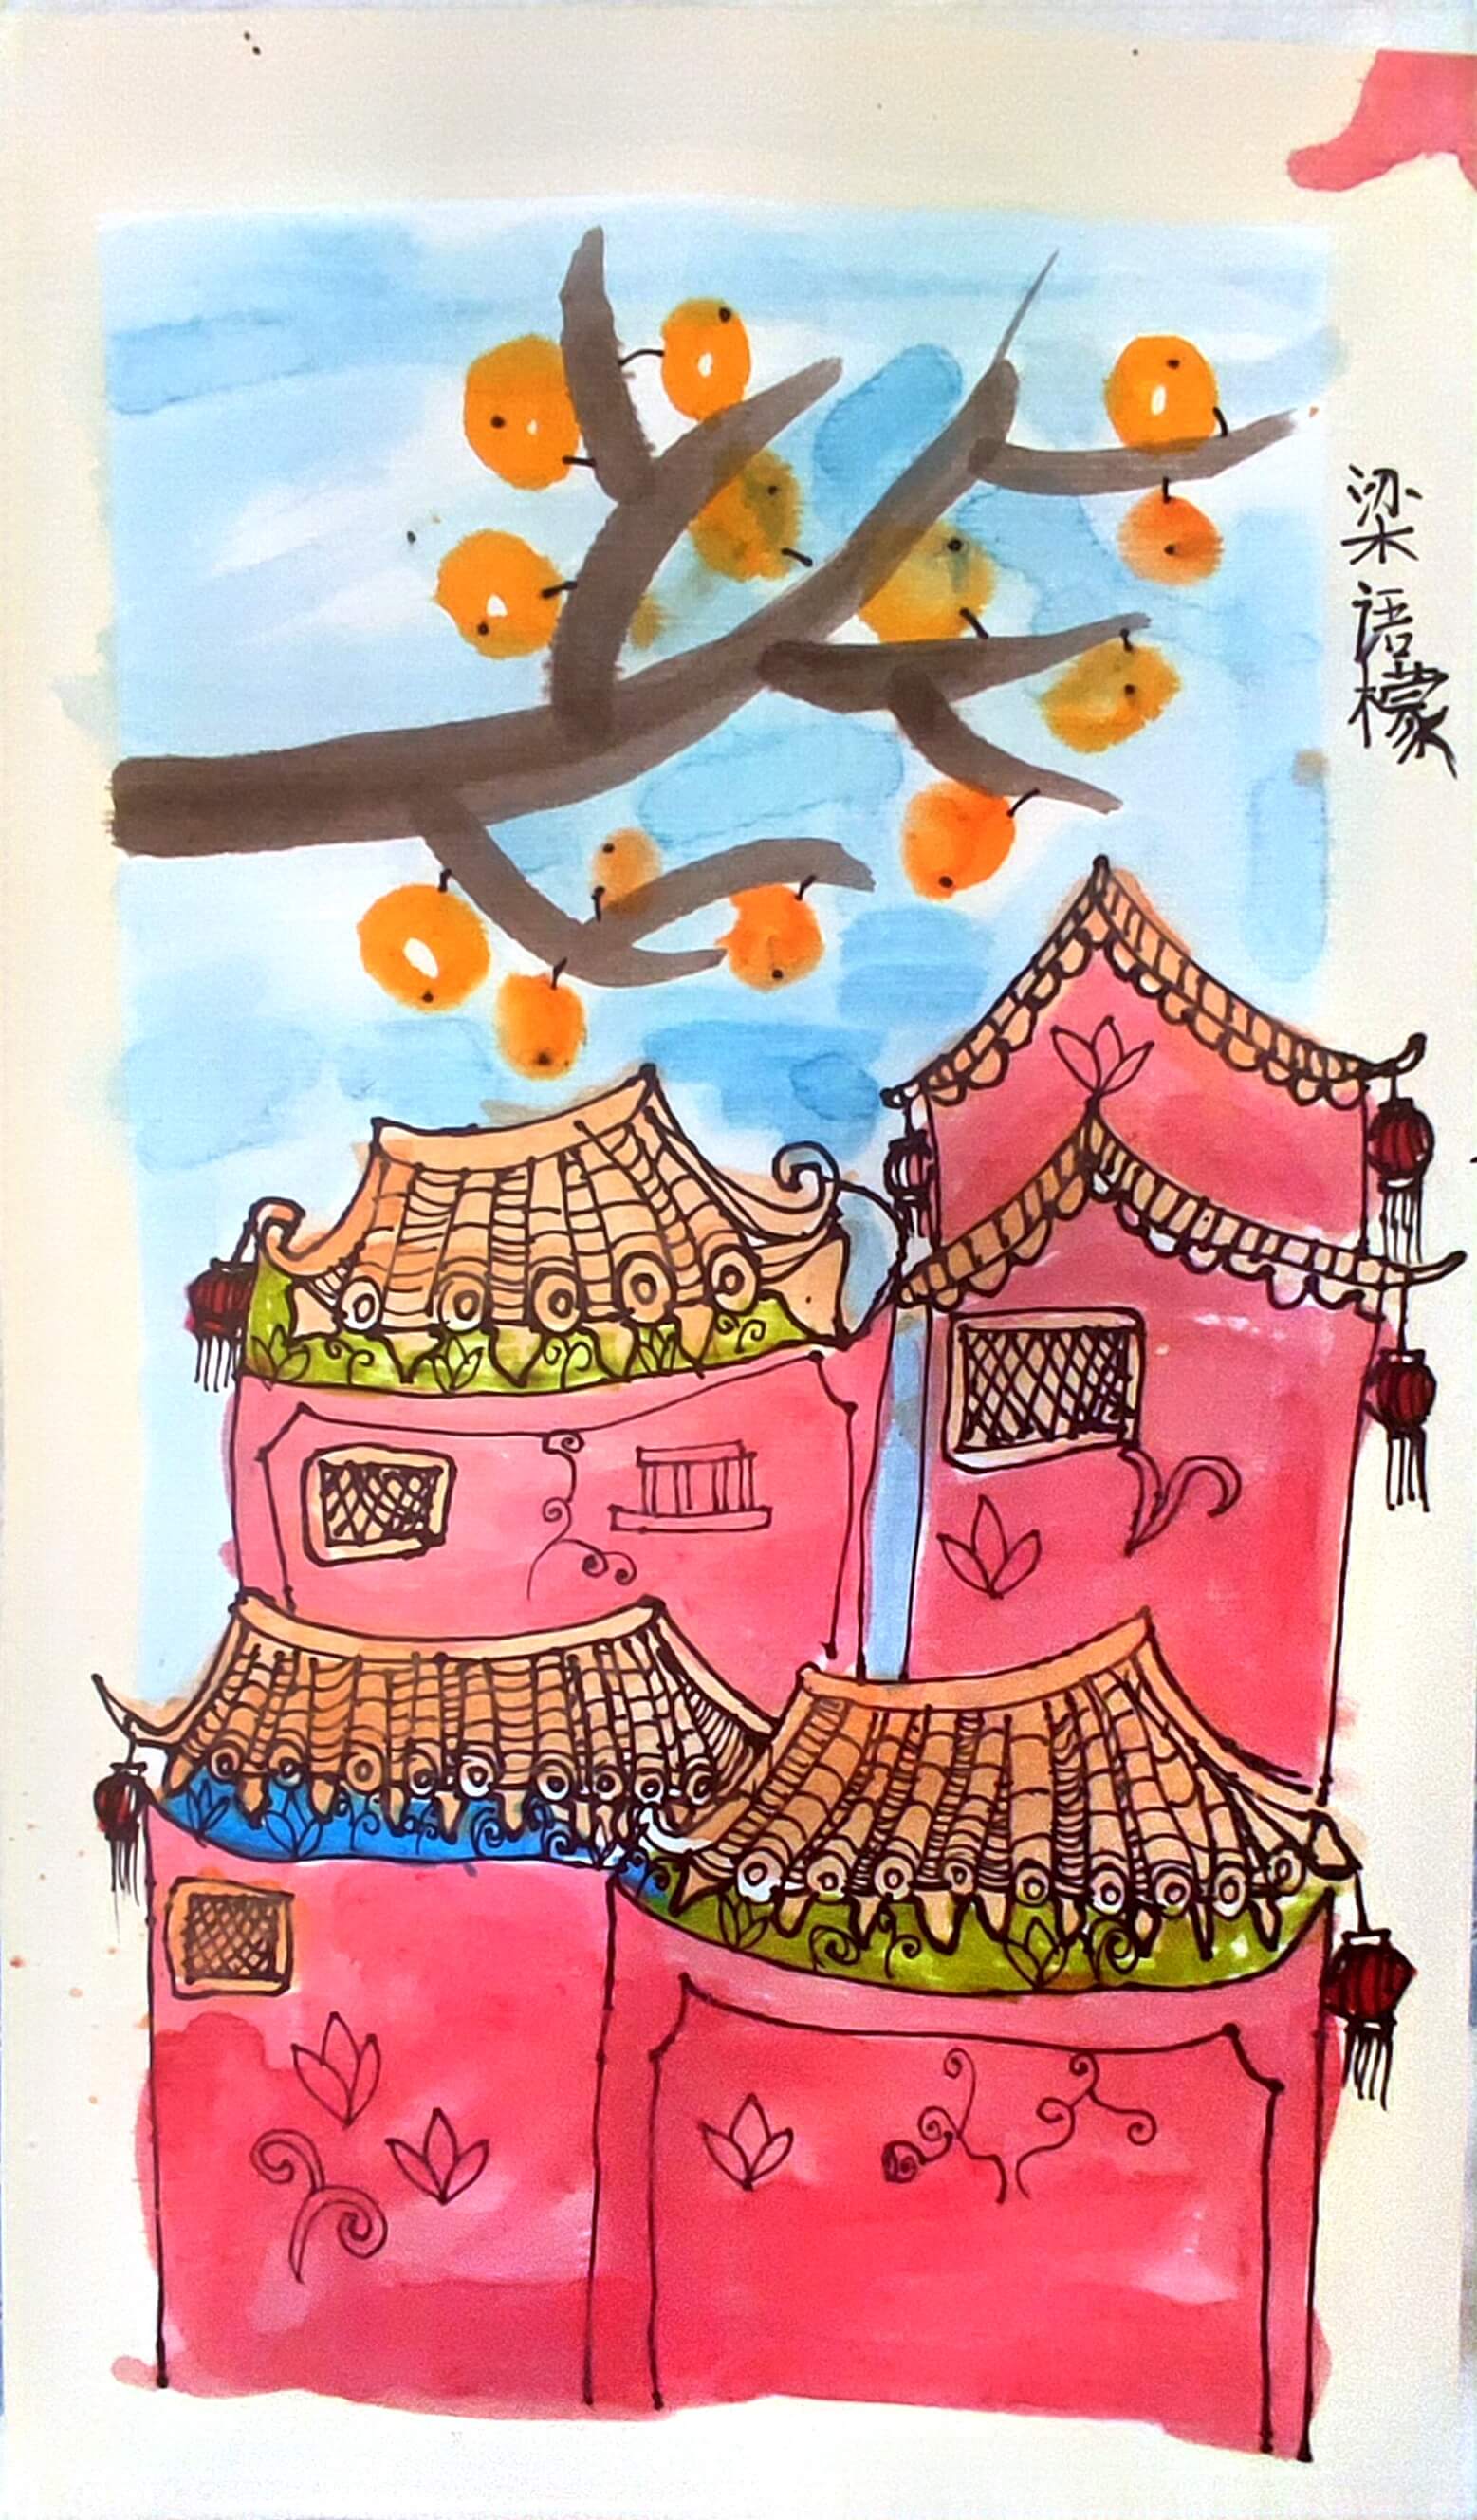 梁语檬